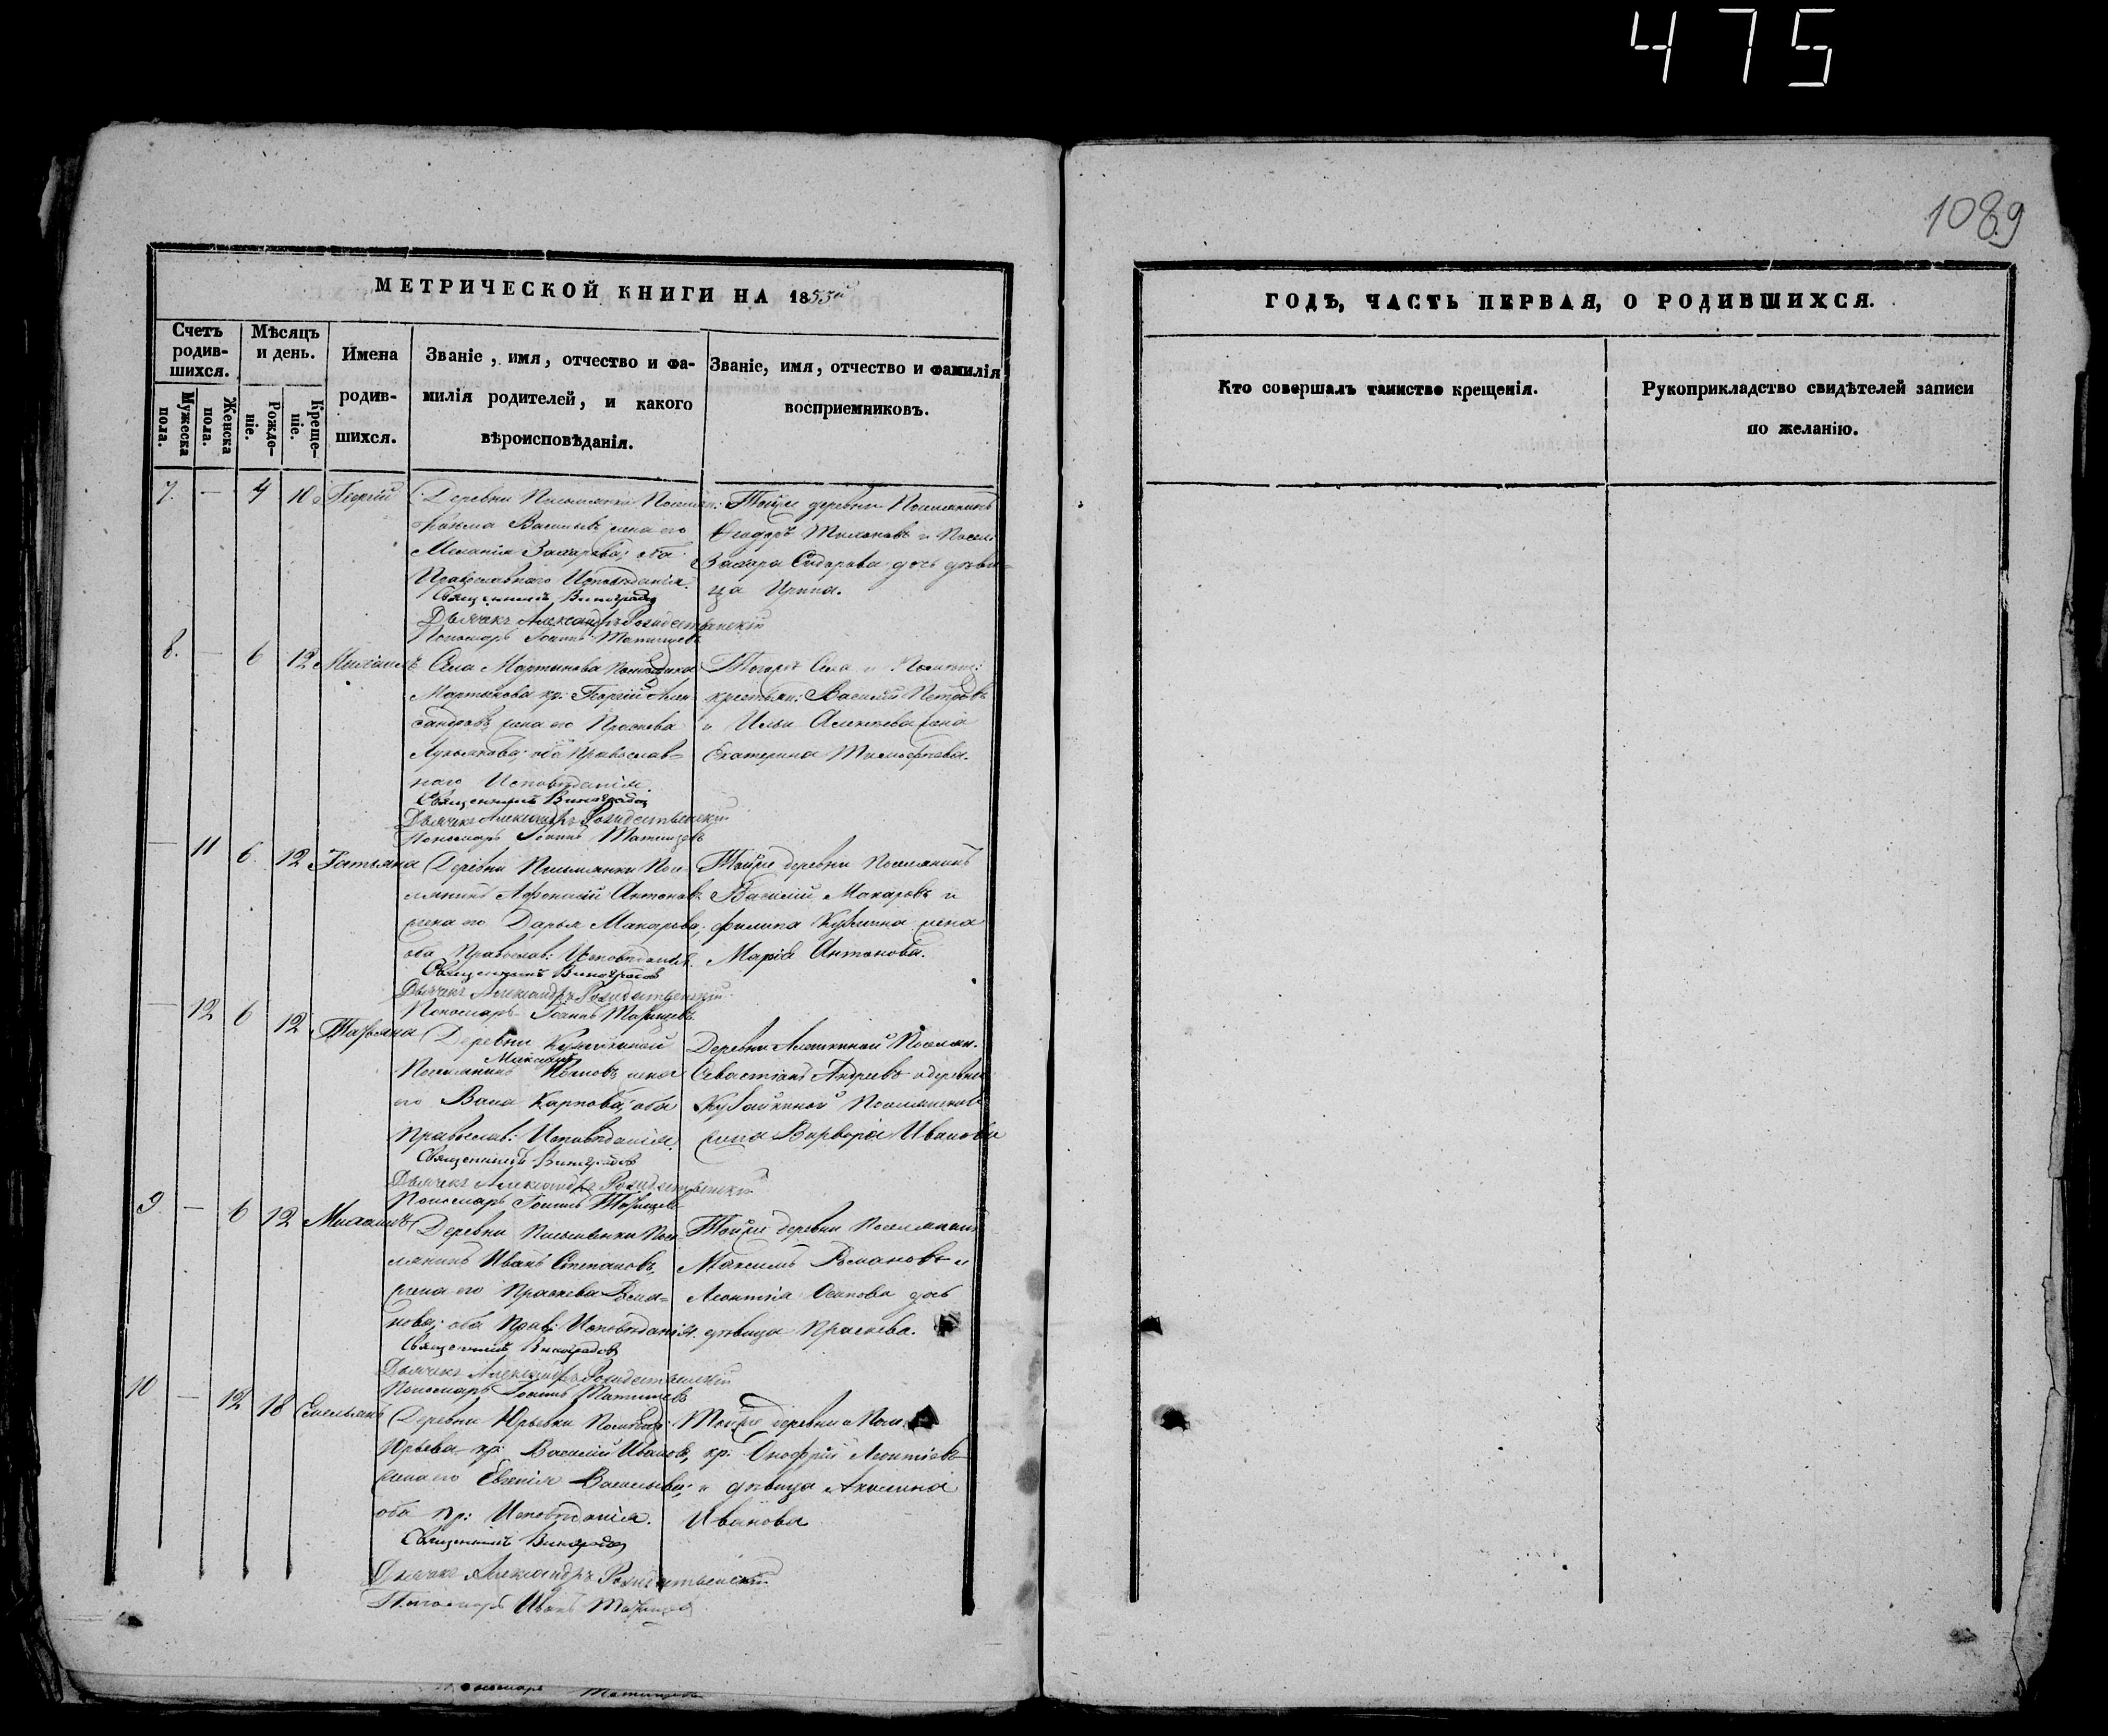 475
1089
МЕТРИЧЕСКОЙ КНИГИ НА 1853й
Счетъ родив-шихся.
Мужеска пола.
Женска пола.
Мѣсяцъ и день.
Рожде-ніе.
Креще-ніе.
Имена родив-шихся.
Званіе, имя, отчество и фа-
милія родителей, и какого
вѣроисповѣданія.
Званіе, имя, отчество и фамилія
восприемниковъ.
7. — 4 10 Георгій
Деревни
Васильевъ жена его
Меланія Захарова; оба
Православнаго Исповѣданія.
Священникъ Виноградов
Дьячекъ Александръ Рождественскій
Пономарь Іоаннъ Татищевъ
Тойже деревни Поселянинъ
Феодоръ и Посел:
Захара Сидорова дочь дѣви-
ца Ирина.
8. — 6 12 Михаилъ
Села Мартынова Помѣщика
Мартынова кр: Георгій Алек-
сандровъ, жена его Праскева
Лукьянова; оба Православ-
наго Исповѣданія.
Священникъ Виноградов
Дьячекъ Александръ Рождественскій
Пономарь Іоаннъ Татищевъ
Тогожъ Села и Помѣщ:
крестьян: Василій Петровъ
и Ильи Алексѣева жена
Екатерина Тимофеева.
— 11 6. 12 Татьяна
Деревни Письмянки Посе-
лянинъ Антоновъ
жена его Дарья Макарова;
оба Православ: Исповѣданія.
Священникъ Виноградов
Дьячекъ Александръ Рождественскій
Пономарь Іоаннъ Татищевъ
Тойже деревни Поселянинъ
Василій Макаровъ и
филипа Кузмина жена
Марія Антонова.
— 12 6 12 Татьяна
Деревни Кубайкиной
Максимъ
Поселянинъ жена
его Васа Карпова; оба
Православ: Исповѣданія.
Священникъ Виноградов
Дьячекъ Александръ Рождественскій
Пономарь Іоаннъ Татищевъ
Деревни Алешкиной Поселян.
Севастіанъ Андреевъ и деревни
Кубайкиной
жена Варвара Иванова
9 — 6 12 Михаилъ
Деревни Письмянки Посе-
лянинъ Иванъ Степановъ,
жена его Праскева Рома-
нова; оба Прав: Исповѣданія.
Священникъ Виноградовъ
Дьячекъ Александръ Рождественскій
Пономарь Іоаннъ Татищевъ
Тойже деревни Поселянинъ
Максимъ Романовъ и
Леонтія Осипова дочь
дѣвица Праскева.
10 — 12 18 Емельянъ
Деревни Юрьевки Помѣщ:
Юрьева кр: Василій Ивановъ,
жена его Евгенія Васильева;
оба пр: Исповѣданія.
Священникъ Виноградов
Дьячекъ Александръ Рождественскій
Пономарь Иванъ Татищевъ
Тойже деревни и Пом.
кр: Онофрій Леонтіевъ
и дѣвица Акилина
Иванова
Пономарь Татищевъ
ГОДЪ, ЧАСТЬ ПЕРВАЯ, О РОДИВШИХСЯ.
Кто совершалъ таинство крещенія.
Рукоприкладство свидѣтелей записи
по желанію.